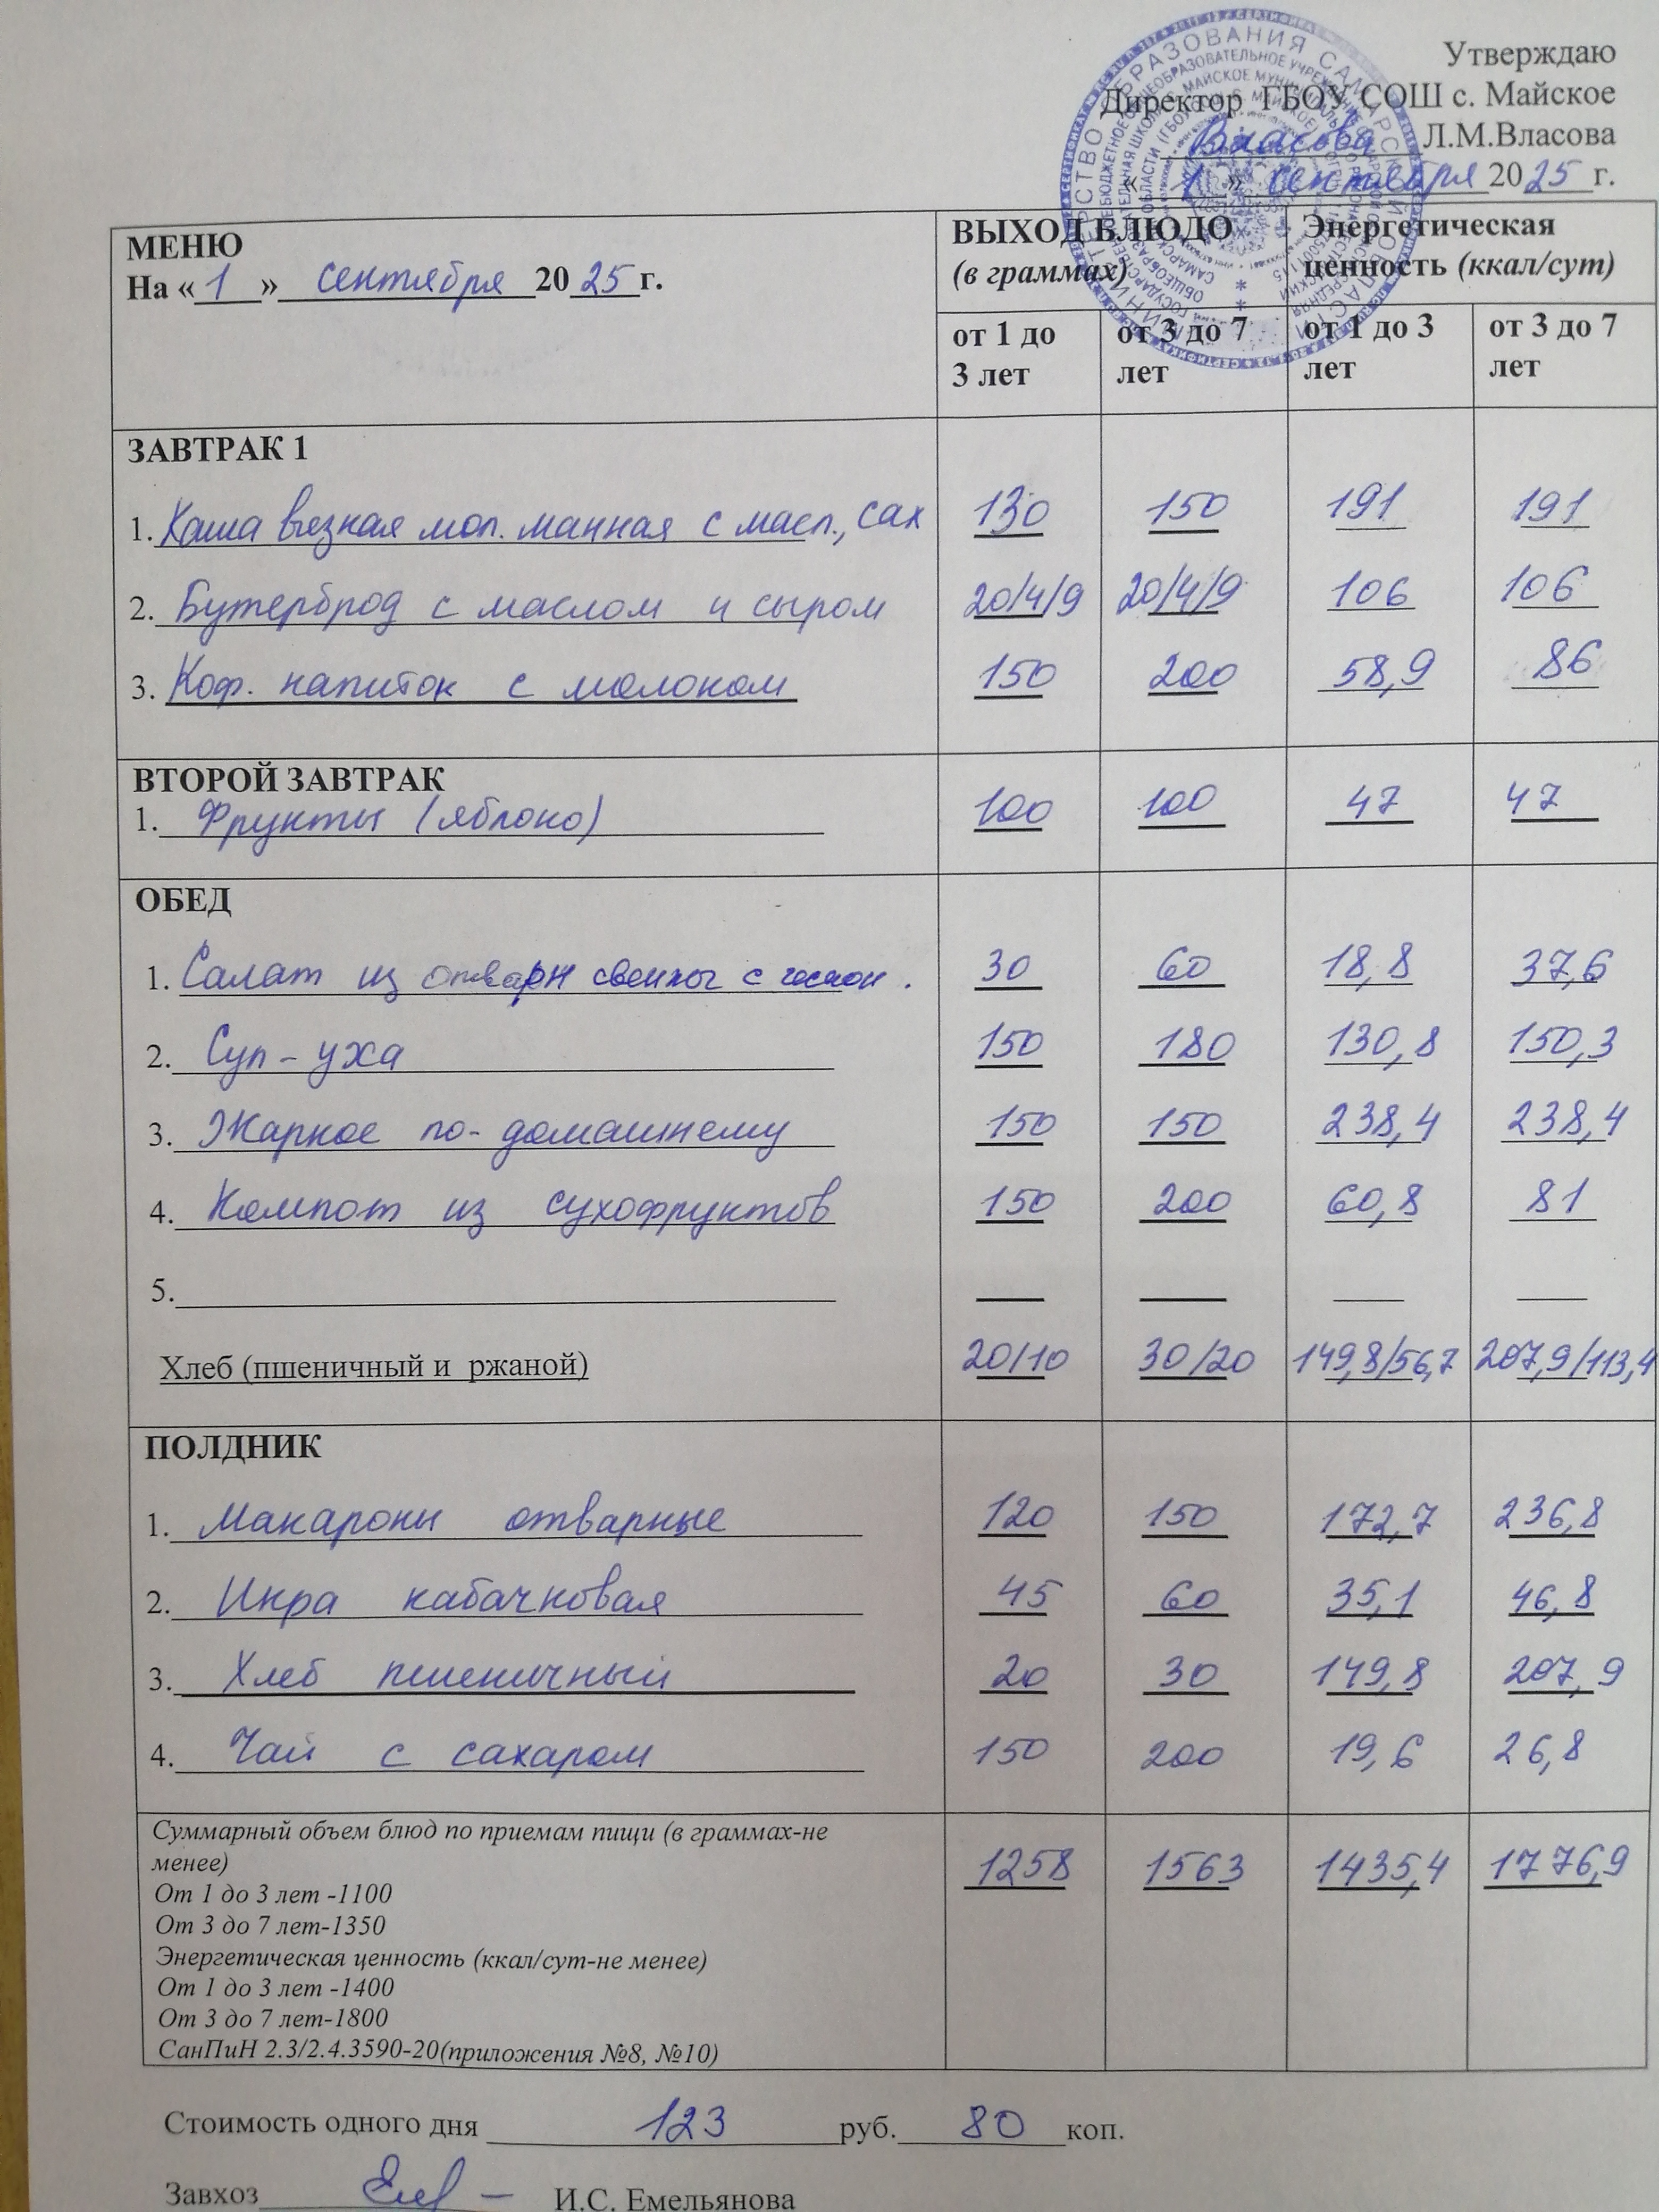 Утверждаю
Директор ГБОУ СОШ с. Майское
Власова Л.М.Власова
« 1 » сентября 2025 г.
МЕНЮ
На « 1 » сентября 20 25 г.
ВЫХОД БЛЮДО (в граммах)
Энергетическая ценность (ккал/сут)
от 1 до 3 лет
от 3 до 7 лет
от 1 до 3 лет
от 3 до 7 лет
ЗАВТРАК 1
1. Каша вязкая мол. манная с масл., сах 130 150 191 191
2. Бутерброд с маслом и сыром 20/4/9 20/4/9 106 106
3. Коф. напиток с молоком 150 200 58,9 86
ВТОРОЙ ЗАВТРАК
1. Фрукты (яблоко) 100 100 47 47
ОБЕД
1. Салат из отварн свеклы с 30 60 18,8 37,6
2. Суп-уха 150 180 130,8 150,3
3. Жаркое по-домашнему 150 150 238,4 238,4
4. Компот из сухофруктов 150 200 60,8 81
5.
Хлеб (пшеничный и ржаной) 20/10 30/20 149,8/56,7 207,9/113,4
ПОЛДНИК
1. Макароны отварные 120 150 172,7 236,8
2. Икра кабачковая 45 60 35,1 46,8
3. Хлеб пшеничный 20 30 149,8 207,9
4. Чай с сахаром 150 200 19,6 26,8
Суммарный объем блюд по приемам пищи (в граммах-не
менее) 1258 1563 1435,4 1776,9
От 1 до 3 лет -1100
От 3 до 7 лет-1350
Энергетическая ценность (ккал/сут-не менее)
От 1 до 3 лет -1400
От 3 до 7 лет-1800
СанПиН 2.3/2.4.3590-20(приложения №8, №10)
Стоимость одного дня 123 руб. 80 коп.
Завхоз И.С. Емельянова